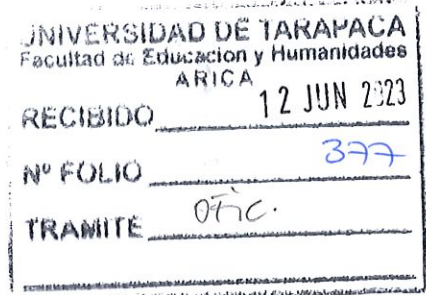 UNIVERSIDAD DE TARAPACA
Facultad de Educacion y Humanidades
ARICA
RECIBIDO 12 JUN 2023
Nº FOLIO 377
TRAMITE OFIC.